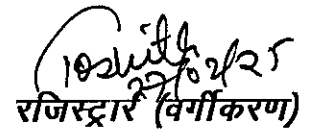 27/02/25
रजिस्ट्रार (वर्गीकरण)